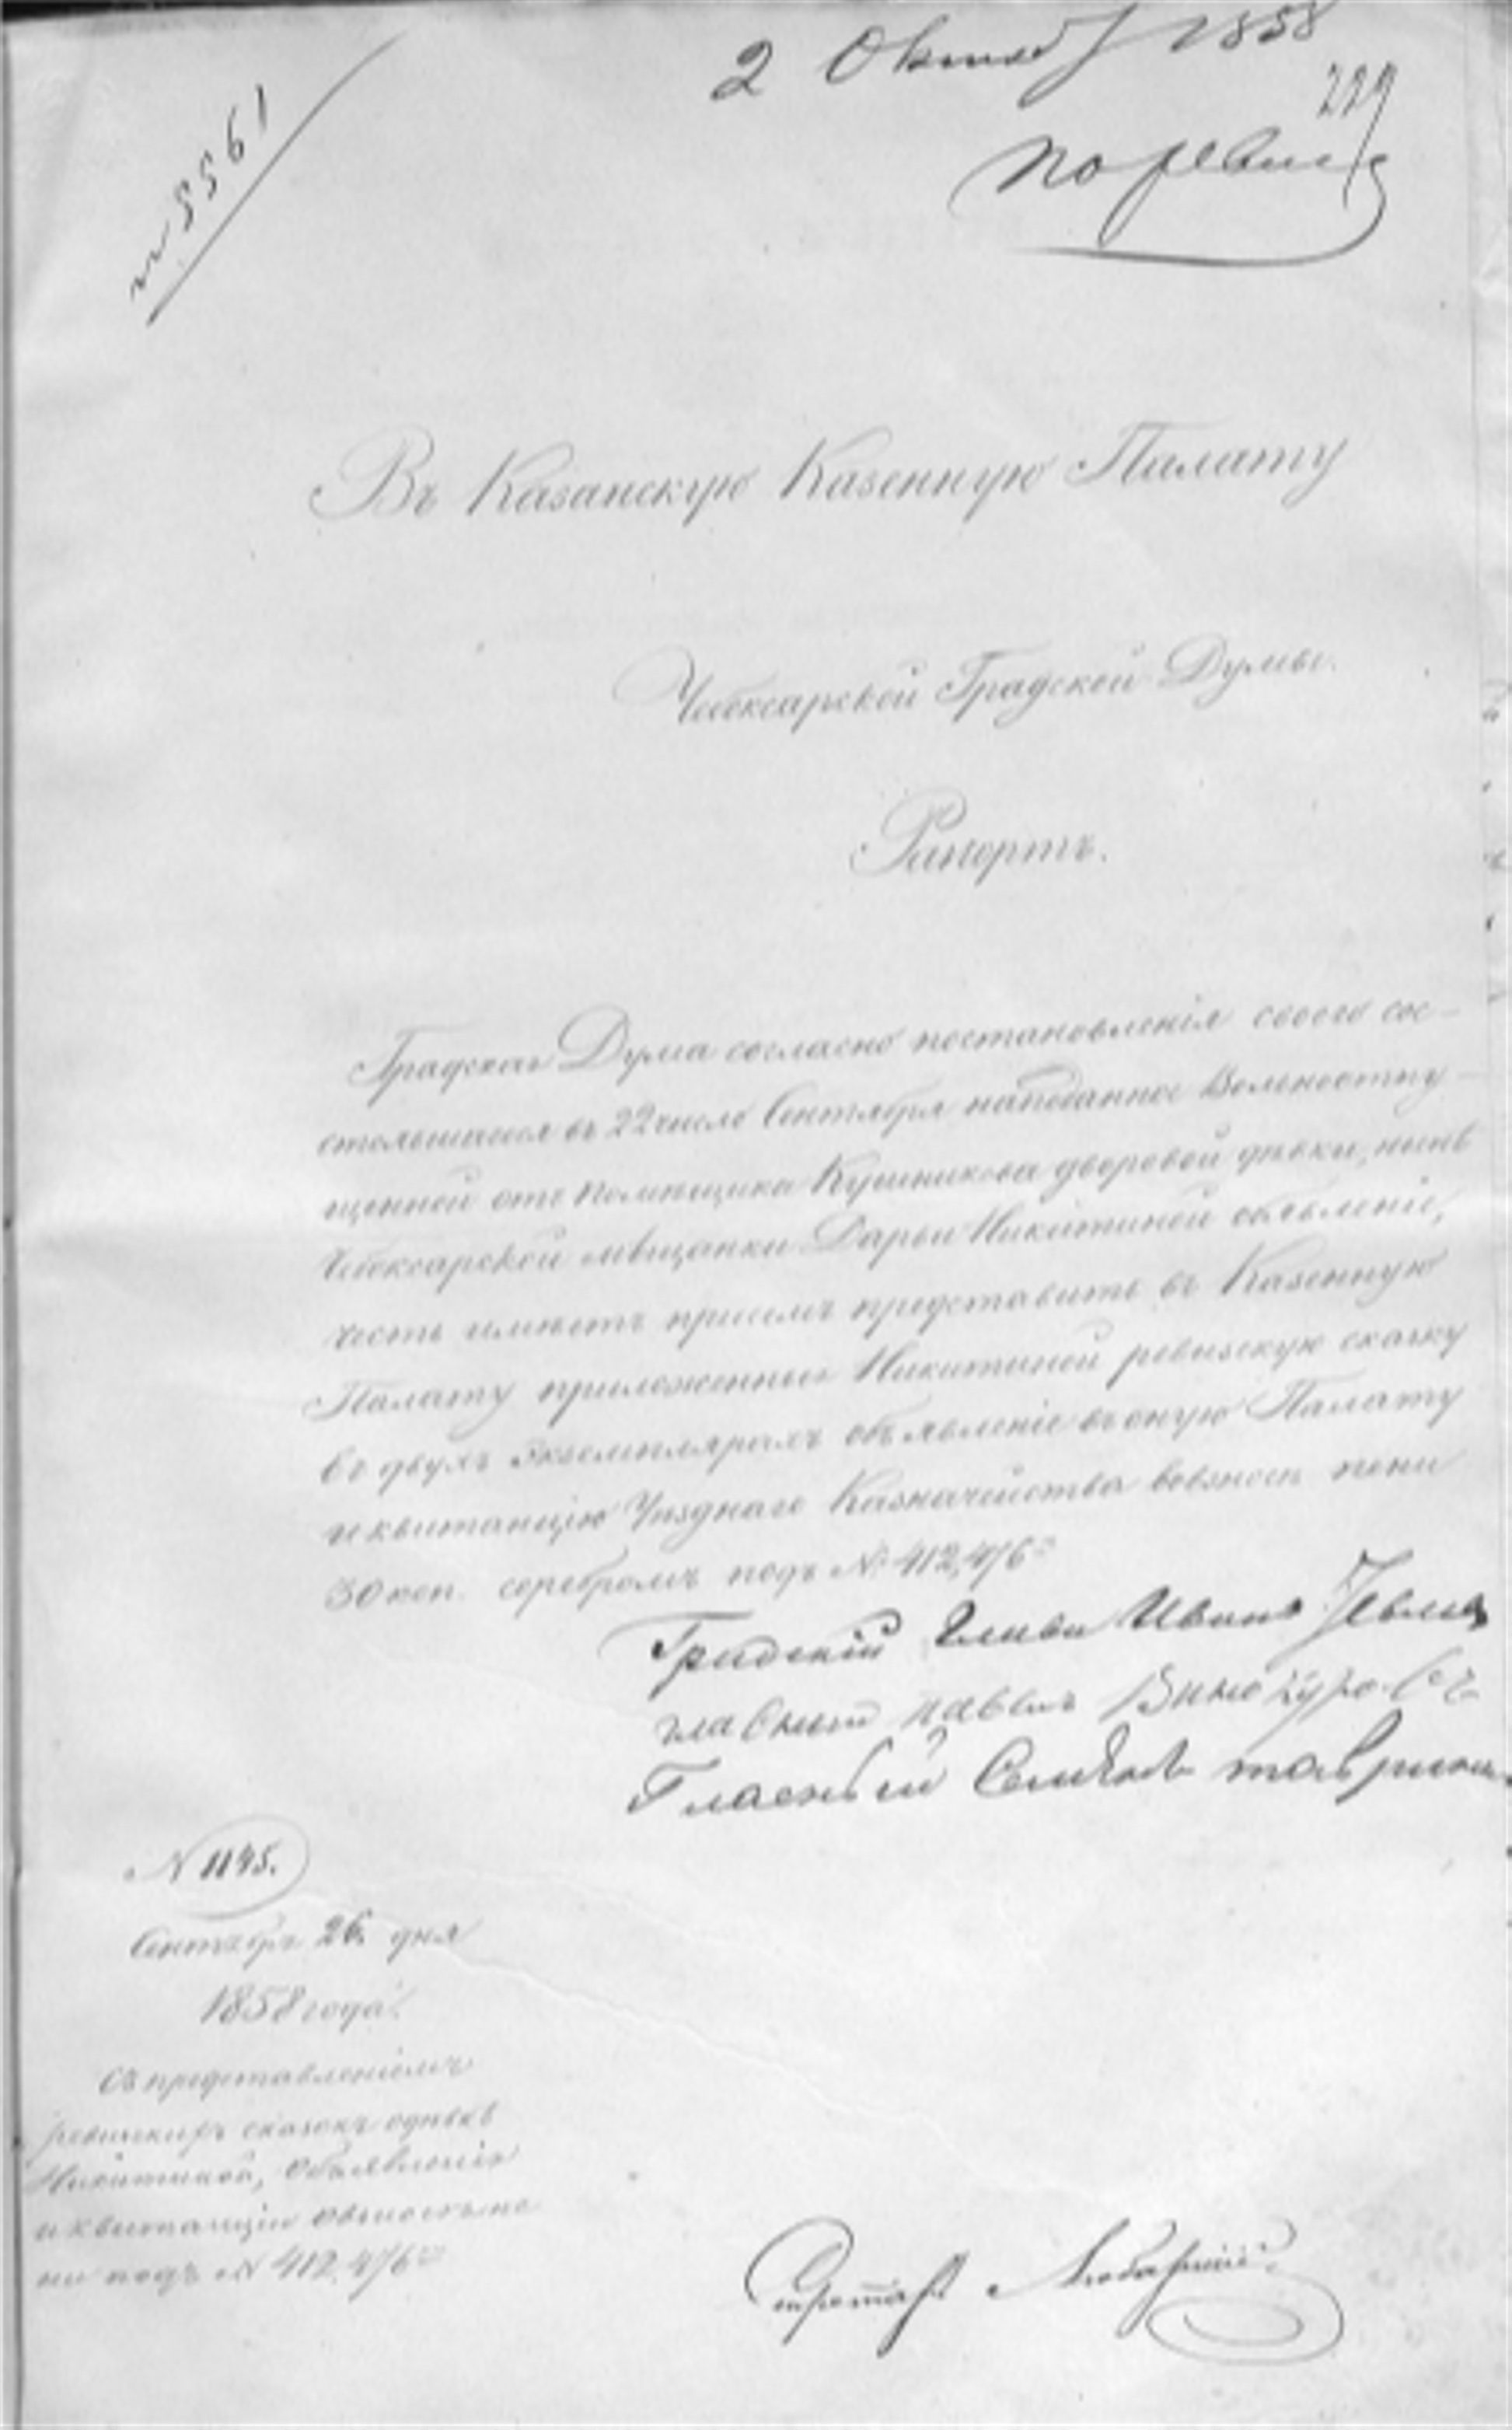 2 Октяб 1858
229
№ 5561
по ревиз
Въ Казанскую Казенную Палату
Чебоксарской Градской Думы.
Рапортъ.
Градская Дума согласно постановленія своего сос-
тоявшагося въ 22 число Сентября наподанное Вольноотпу-
щенной отъ Помѣщика Кушникова дворовой дѣвки, нынѣ
Чебоксарской мѣщанки Дарьи Никитиной объявленіе,
честь имѣетъ присемъ представить въ Казенную
Палату приложенныя Никитиной ревизскую сказку
въ двухъ экземплярахъ объявленіе въ оную Палату
и квитанцію Уѣзднаго Казначейства вовзносѣ пени
30 коп. серебромъ подъ № 412,476
Градскій Глава Иванъ
гласный павелъ Винокуровъ
Гласный
№ 1145.
Сентября 26. дня
1858 года.
Съ представленіемъ
ревизкихъ сказокъ одѣвкѣ
Никитиной, объявленія
и квитанціи овзносѣ пе
ни подъ № 412,476
Секретарь